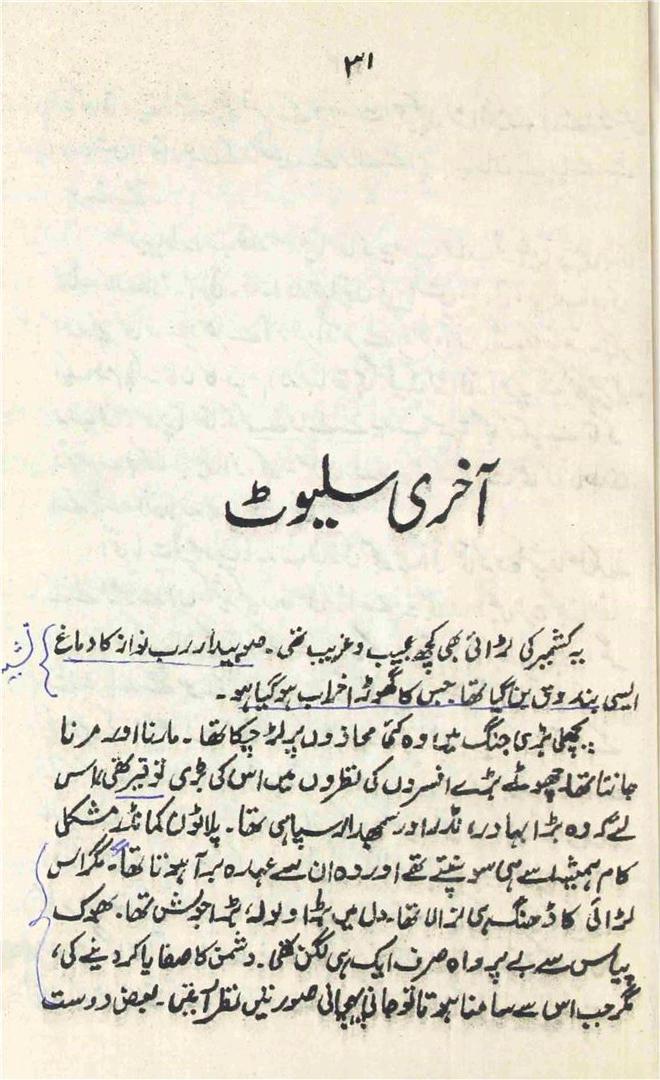 ۳۱
آخری سلیوٹ
یہ کشمیر کی لڑائی بھی کچھ عجیب و غریب تھی۔ صوبیدار رب نواز کا دماغ
ایسی بندوق بن گیا تھا۔ جس کا گھوڑا خراب ہو گیا ہو۔
پچھلی بڑی جنگ میں وہ کئی محاذوں پر لڑ چکا تھا۔ مارنا اور مرنا
جانتا تھا۔ چھوٹے بڑے افسروں کی نظروں میں اس کی بڑی توقیر تھی، اس
لئے کہ وہ بڑا بہادر، نڈر اور سمجھدار سپاہی تھا۔ پلاٹون کمانڈر مشکل
کام ہمیشہ اسے ہی سونپتے تھے اور وہ ان سے عہدہ برآ ہوتا تھا۔ مگر اس
لڑائی کا ڈھنگ ہی نرالا تھا۔ دل میں بڑا ولولہ، بڑا جوش تھا۔ بھوک
پیاس سے بے پرواہ صرف ایک ہی لگن تھی۔ دشمن کا صفایا کر دینے کی،
مگر جب اس سے سامنا ہوتا تو جانی پہچانی صورتیں نظر آتیں۔ بعض دوست